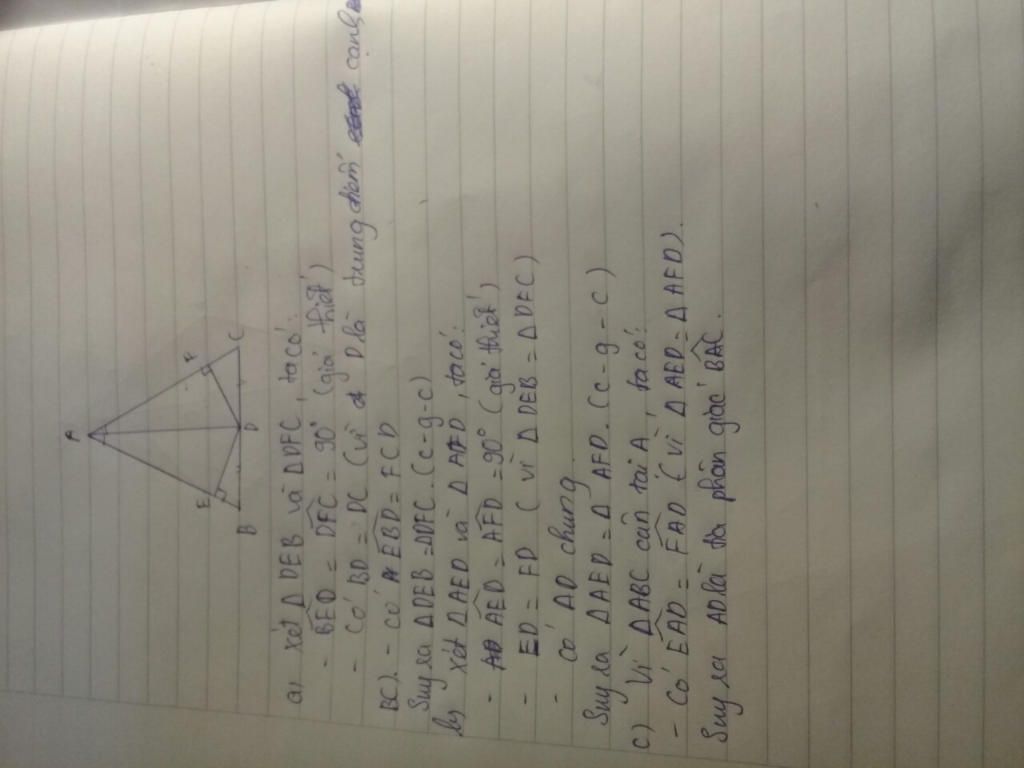 A
E
F
B
D
C
a, xét Δ DEB và ΔDFC, ta có:
- BÊD = DF̂C = 90° (giả thiết)
- Có BD = DC (vì D là trung điểm cạnh
BC). - Có ÊBD = FCD
Suy ra ΔDEB = DFC. (c-g-c)
b, Xét ΔAED và Δ AFD, ta có:
- AÊD = AF̂D = 90° (giả thiết)
- ED = FD (vì Δ DEB = Δ DFC)
- Có AD chung
Suy ra ΔAED = Δ AFD. (c-g-c)
c) Vì ΔABC cân tại A, ta có:
- Có EÂD = FÂD (vì Δ AED = Δ AFD).
Suy ra AD là tia phân giác BÂC.